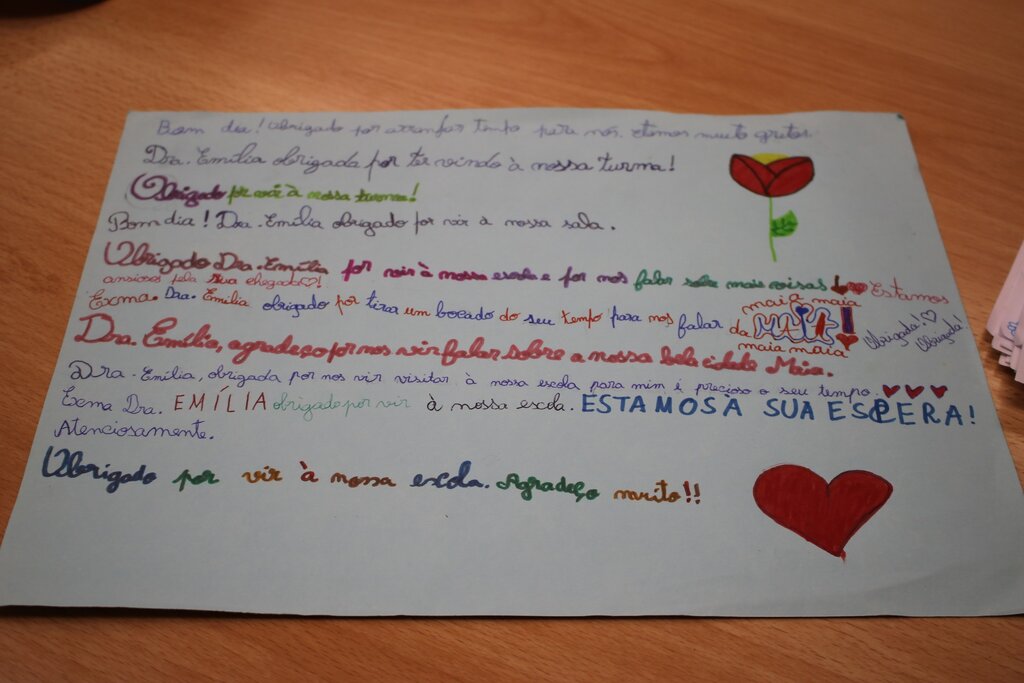 Bom dia! Obrigado por arranjar tempo para nós, etamos muito gratos.
Dra. Emília obrigada por ter vindo à nossa turma!
Obrigado por vir à nossa turma!
Bom dia! Dra. Emília obrigado por vir à nossa sala.
Obrigado Dra. Emília por vir à nossa escola e por nos falar sobre mais coisas! Estamos
ansiosos pela sua chegada!
Exma. Dra. Emília obrigado por tirar um bocado do seu tempo para nos falar da
maia maia
maia maia
Obrigada!
Obrigada!
Dra. Emília, agradeço por nos vir falar sobre a nossa bela cidade Maia.
Dra. Emília, obrigada por nos vir visitar à nossa escola para mim é precioso o seu tempo.
Exma Dra. EMÍLIA obrigado por vir à nossa escola. ESTAMOS À SUA ESPERA!
Atenciosamente.
Obrigado por vir à nossa escola. Agradeço muito!!